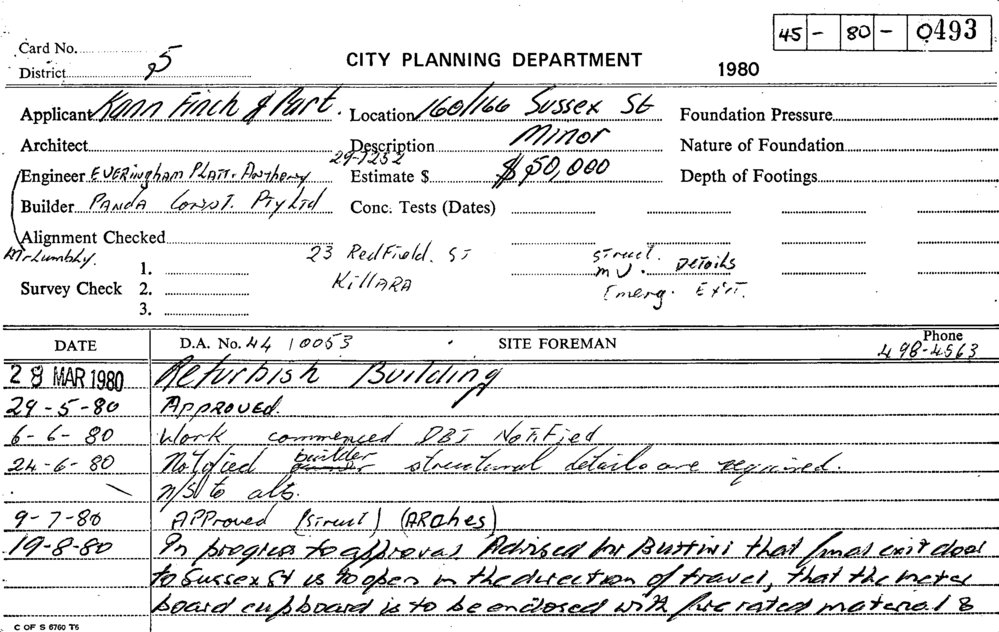 45 - 80 - 0493
Card No.
District 5
CITY PLANNING DEPARTMENT
1980
Applicant Kann Finch & Part. Location 160/166 Sussex St Foundation Pressure
Architect Description Minor Nature of Foundation
29-7252
Engineer EVERingham PLATT. Anthony Estimate $ $50,000 Depth of Footings
Builder PANDA Const. Pty Ltd Conc. Tests (Dates)
Alignment Checked 23 RedField. ST struct.
Mr Lumbly. 1. m V. Details
Survey Check 2. KILLARA Emerg. Exit.
3.
DATE D.A. No. 44 10053 SITE FOREMAN Phone 498-4563
28 MAR 1980 Refurbish Building
29-5-80 APPROVED.
6-6-80 Work commenced DBI Notified
24-6-80 Notified builder structural details are required.
N/S to alts.
9-7-80 APProved (Struct) (ARches)
19-8-80 In progress to approval Advised Mr Buttini that final exit door
to Sussex St is to open in the direction of travel, that the meter
board cupboard is to be enclosed with fire rated material &
C OF S 6760 T6